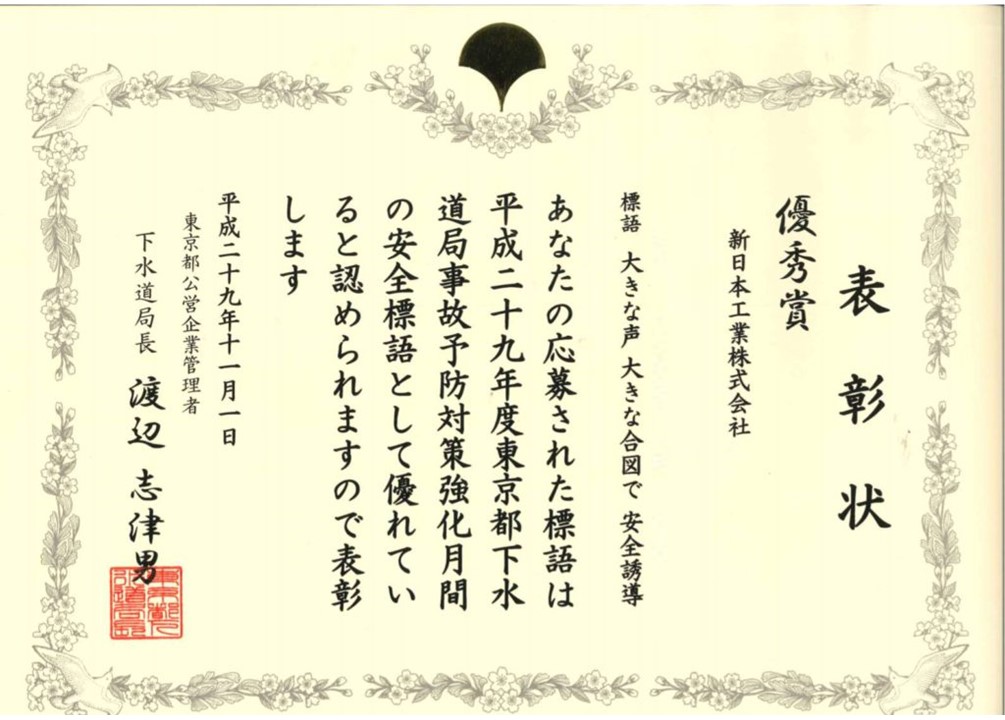 表彰状
優秀賞
新日本工業株式会社
標語 大きな声 大きな合図で 安全誘導
あなたの応募された標語は
平成二十九年度東京都下水
道局事故予防対策強化月間
の安全標語として優れてい
ると認められますので表彰
します
平成二十九年十一月一日
東京都公営企業管理者
下水道局長 渡辺 志津男